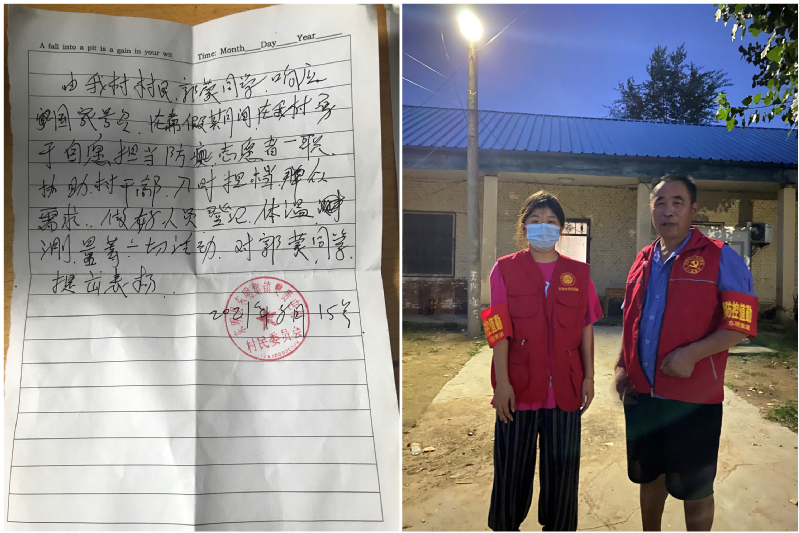 A fall into a pit is a gain in your wit Time: Month Day Year
由我村村民郭荣同学,响应
国家号召,在暑假期间,在我村
于自愿担当防疫志愿者一职.
协助村干部,及时担档群众
需求.做好人员登记.体温
测量等一切活动.对郭荣同学
提出表扬.
2021年8月15号
村民委员会
防控值勤